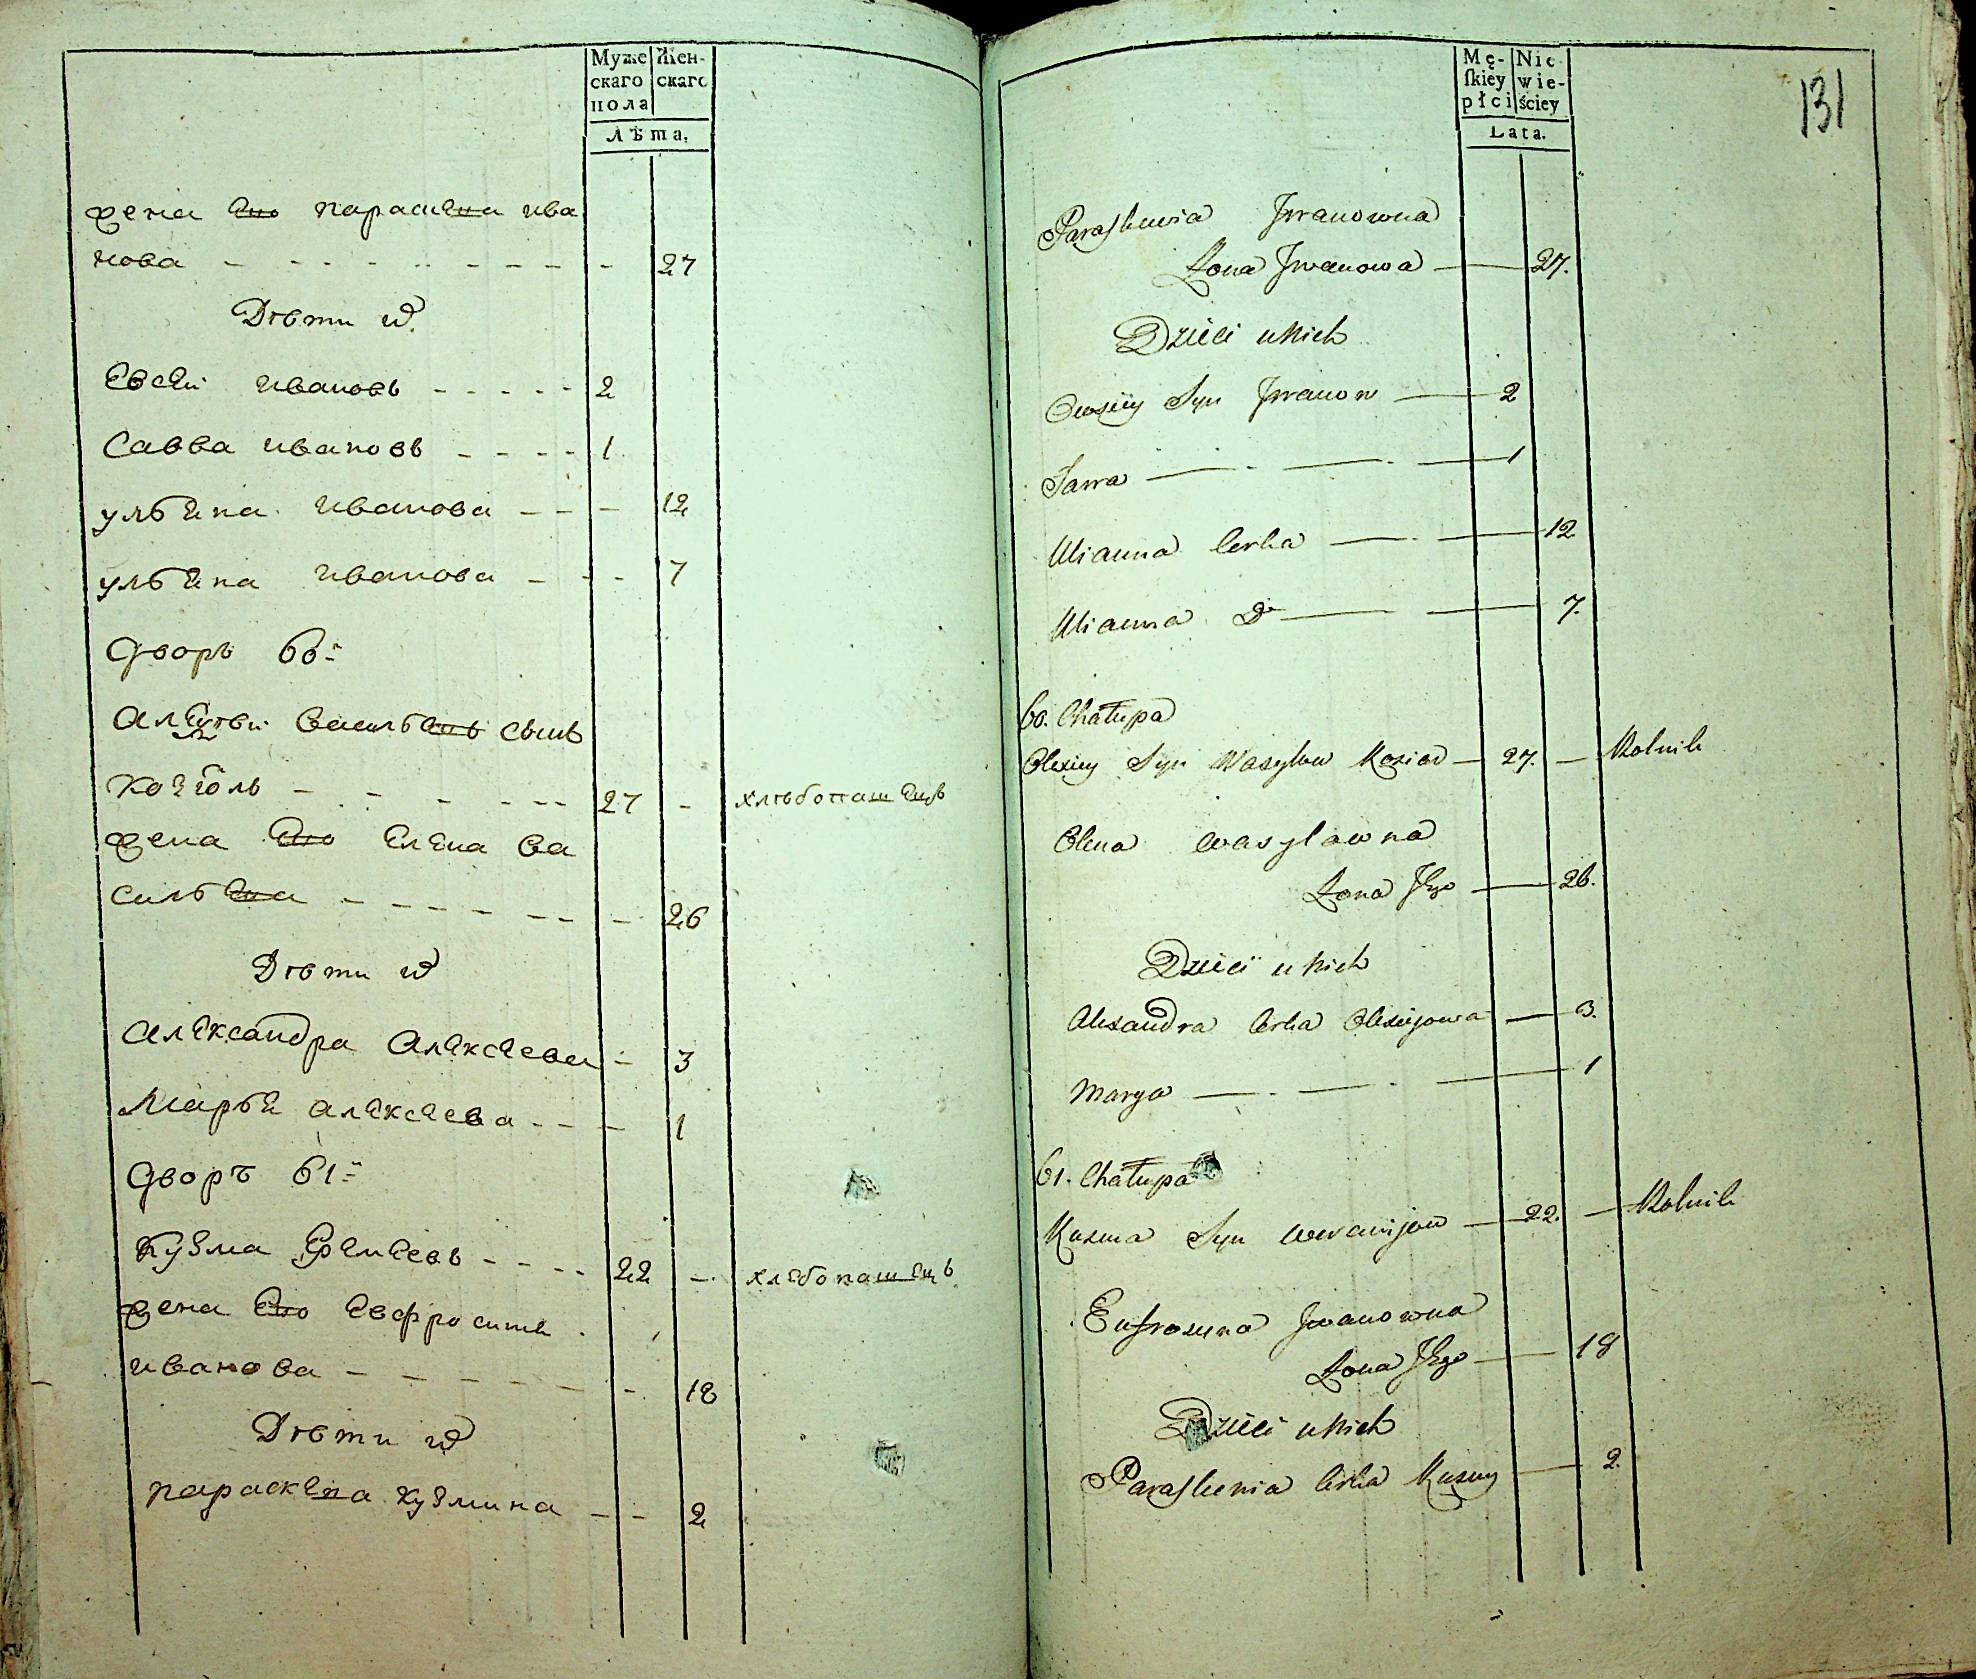 Муже
скаго
пола
Жен-
скаго
Лѣта.
жена его параскева ива
нова - - - - - - - - - 27
Дѣти их
Евсей ивановъ - - - - - 2
Савва ивановъ - - - - 1
ульѣна иванова - - - 12
ульѣна иванова - - - 7
Дворъ 60й
Алексѣй Васильевъ сынъ
козіолъ - - - - - - - 27 - хлѣбопашецъ
жена его Елена Ва
сильева - - - - - - - - 26
Дѣти их
Александра Алексеева - 3
Марья алексеева - - - - 1
Дворъ 61й
Кузма - - - - 22 - хлебопашецъ
жена его Евфросинья
иванова - - - - - - - 18
Дѣти их
параскева кузмина - - 2
Mę-
ſkiey
płci
Nie
wie-
ściey
Lata.
131
Paraskewia Jwanowna
Żona Jwanowa — 27.
Dzieci u Nich
Owsiiy Syn Jwanow — 2
Sawa — - — - — 1
Ulianna Corka — - — 12
Ulianna Do — — 7.
60. Chałupa
Olexiey Syn Wasylow Kozioł — 27. — Rolnik
Olena Wasylowna
Żona Jego — 26.
Dzieci u Nich
Alexandra Corka Olexiejowa — 3.
Marya — - — - — 1
61. Chałupa
Kuzma Syn — 22. — Rolnik
Eufrozyna Jwanowna
Żona Jego — 18
Dzieci u Nich
Paraskewia Corka Kuzmy — 2.